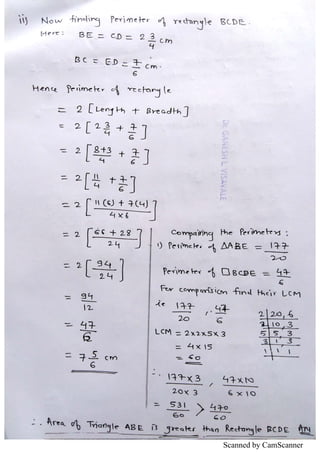 ii) Now finding Perimeter of rectangle BCDE.
Here: BE = CD = 2 3/4 cm
BC = ED = 7/6 cm.
Hence Perimeter of rectangle
= 2 [Length + Breadth]
= 2 [2 3/4 + 7/6]
= 2 [8+3/4 + 7/6]
= 2 [11/4 + 7/6]
= 2 [11(6) + 7(4)/4x6]
= 2 [66 + 28/24]
= 2 [94/24]
= 94/12
= 47/6
= 7 5/6 cm
Dr. GANESH L VISAVALE
Comparing the Perimeters :
i) Perimeter of ΔABE = 177/20
Perimeter of □BCDE = 47/6
For comparision find their LCM
ie 177/20 , 47/6
LCM = 2x2x5x3
= 4x15
= 60
2 | 20, 6
2 | 10, 3
5 | 5, 3
3 | 1, 3
1, 1
∴ 177x3/20x3 , 47x10/6x10
= 531/60 > 470/60
∴ Area of Triangle ABE is greater than Rectangle BCDE Ans
Scanned by CamScanner